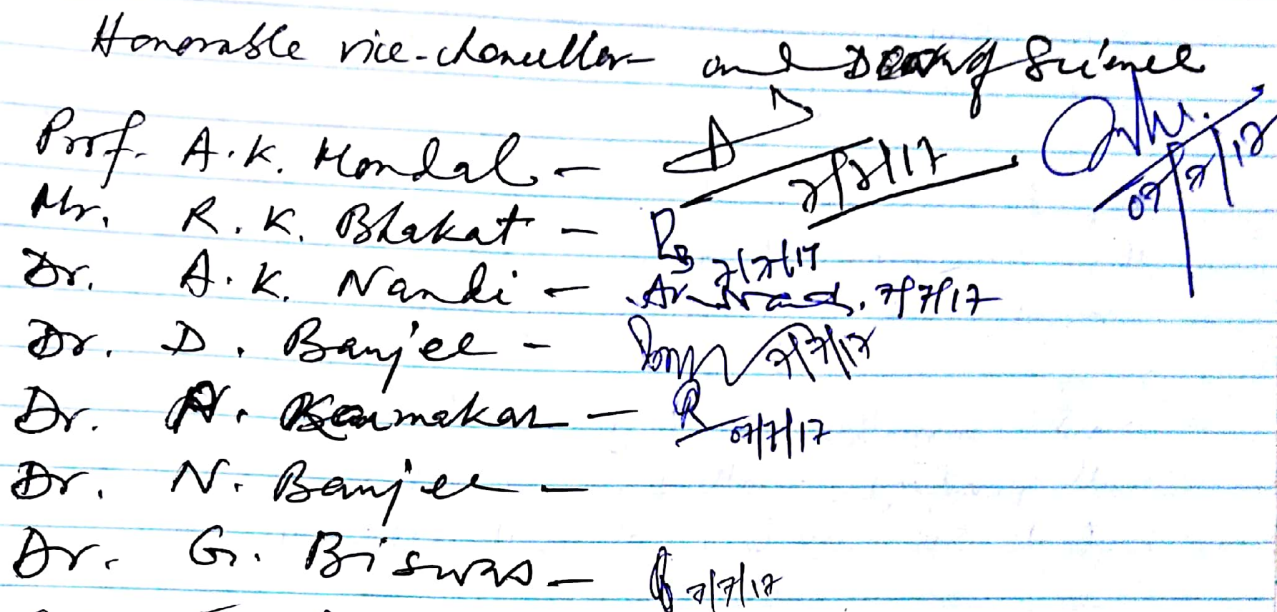 Honorable vice-chanceller and Dean of Science
Prof. A.K. Mondal - 7/7/17 07/7/17
Mr. R.K. Bhakat - 7/7/17
Dr. A.K. Nandi - 7/7/17
Dr. D. Banjee - 7/7/17
Dr. A. Karmakar - 07/7/17
Dr. N. Banjee -
Dr. G. Biswas - 7/7/17